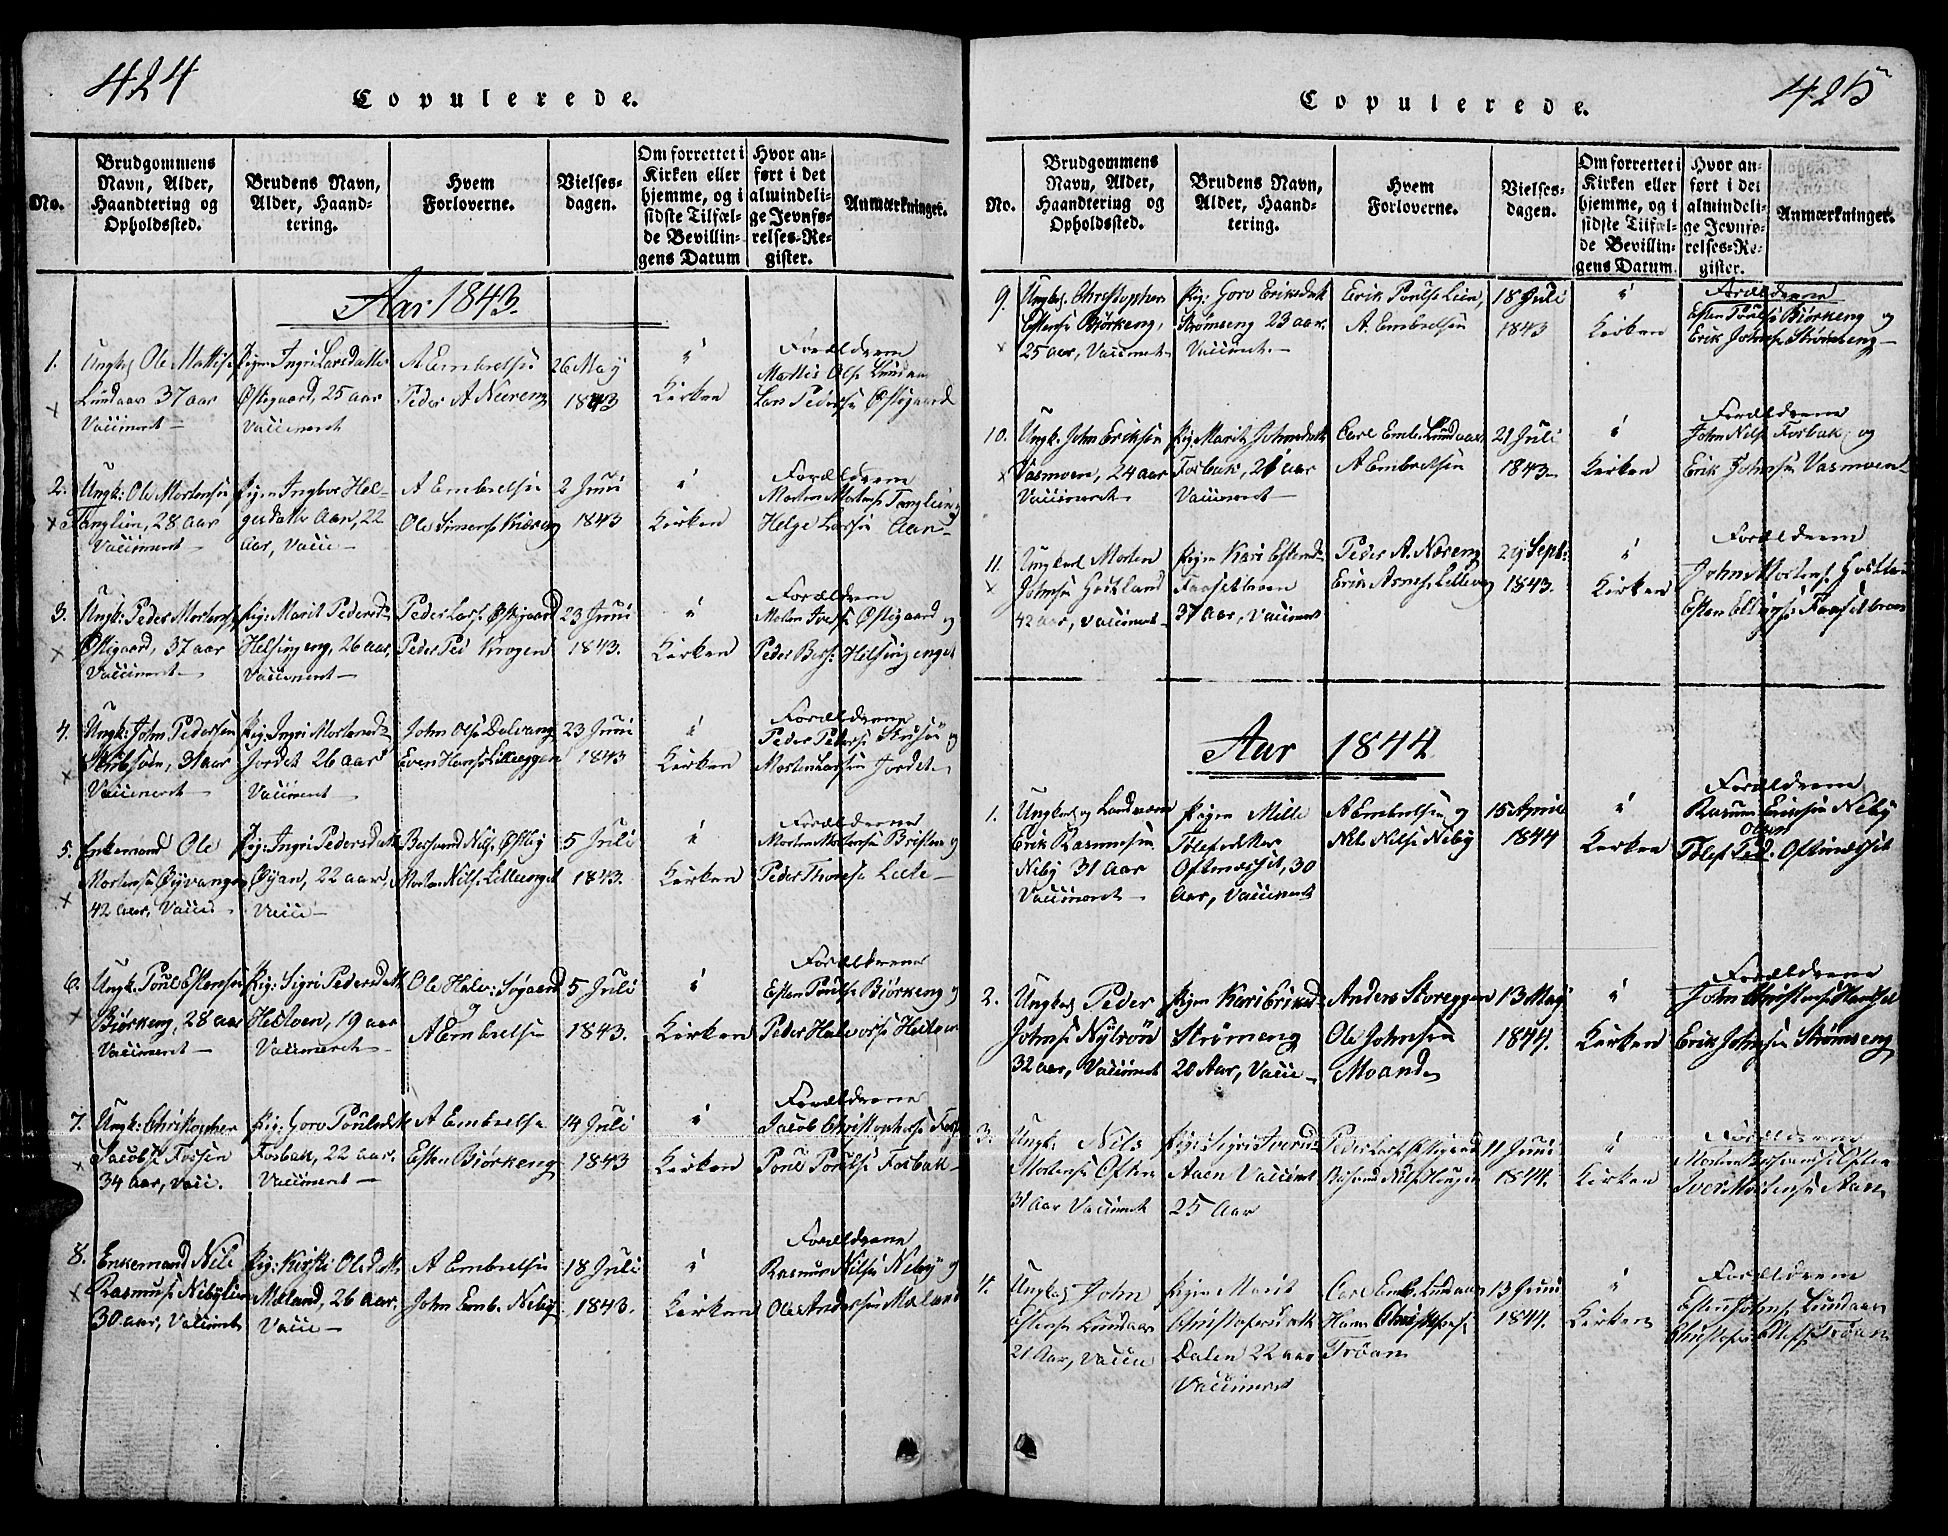 424
Copulerede.
No.
Brudgommens Navn, Alder, Haandtering og Opholdssted.
Brudens Navn, Alder, Haandtering.
Hvem Forloverne.
Vielsesdagen.
Om forrettet i Kirken eller hjemme, og i sidste Tilfælde Bevillingens Datum
Hvor anført i det almindelige Jevnførelses-Register.
Anmærkninger.
Aar 1843.
1.
Ungk: Ole Mattis:
Lundaas 37 aar
Vaccineret
Pigen Ingri Larsdatter
Østgaard, 25 aar
Vaccineret
A Embretsen
Peder A Næreng
26 May
1843
i
Kirken
Forældrene
Mattis Ols: Lundaas
Lars Pedersen Østgaard
2.
Ungk: Ole Mortensen
Tanglien, 28 aar
Vaccineret
Pigen Ingbor Hel-
gesdatter Aan, 22
Aar, Vacci
A Embretsen
Ole Simens:
2 Juni
1843
i
Kirken
Forældrene
Morten Mortens: Tanglien
Helge Larsen Aan
3.
Ungk: Peder Mortens:
Østgaard, 37 aar
Vaccineret
Pig: Marit Pedersd:
Helsingeng, 26 aar,
Vaccineret
Peder Lars: Østgaard
Peder Ped: Krogen
23 Juni
1843.
i
Kirken
Forældrene
Morten Ivers: Østgaard og
Peder Bers: Helsingenget
4.
Ungk: John Pedersen
31 aar
Vaccineret
Pig: Ingri Mortensd:
Jordet 26 aar
Vaccineret
John Ols: Dalvang
Even Hans: Lilleeggen
23 Juni
1843
i
Kirken
Forældrene
Peder Peders: og
Morten Larsen Jordet
5.
Enkemand Ole
Mortensen Øyvangen
42 aar, Vacci
Pig: Ingri Pedersdatt
Øyan, 22 aar,
Vacci
Bersvend Nils: Østby
Morten Nils: Lillenget
5 Juli
1843.
i
Kirken
Forældrene
Morten Mortensen og
Peder Thomsen
6.
Ungk: Poul Estensen
Biørkeng, 28 aar
Vaccineret
Pig: Sigri Pedersdatt
Heitven, 19 aar
Vaccineret
Ole Halv: Søgaard
og
A Embretsen
5 Juli
1843.
i
Kirken
Forældrene
Esten Pouls: Biørkeng og
Peder Halvors: Heitven
7.
Ungk: Christopher
Jacobs: Fossen
34 aar, Vacci.
Pig: Goro Poulsdatt
Forbak, 22 aar.
Vaccineret
A Embretsen
Esten Biørkeng
14 Juli
1843
i
Kirken
Forældrene
Jacob Christophers: Foss
Poul Pouls: Forbak
8.
Enkemand Nils
Rasmus: Nebylien
30 aar, Vaccineret
Pig: Kirsti Olsdatt
Mæland, 26 aar,
Vacci
A Embretsen
John Emb: Neby
18 Juli
1843.
i
Kirken
Forældrene
Rasmus Nilsen Neby og
Ole Andersen Mæland
425
Copulerede.
No.
Brudgommens Navn, Alder, Haandtering og Opholdssted.
Brudens Navn, Alder, Haandtering.
Hvem Forloverne.
Vielsesdagen.
Om forrettet i Kirken eller hjemme, og i sidste Tilfælde Bevillingens Datum.
Hvor anført i det almindelige Jevnførelses-Register.
Anmærkninger.
9.
Ungk: Christopher
Estensen Biørkeng,
25 aar, Vaccineret
Pig: Goro Eriksdatt
Strømeng 23 aar.
Vaccineret.
Erik Pouls: Lien,
A. Embretsen
18 Juli
1843
i
Kirken
Forældrene
Esten Pouls: Biørkeng og
Erik Johns: Strømseng
10.
Ungk: John Eriksen
Vasmoen, 24 aar
Vaccineret
Pig: Marit Johnsdatt
Forbak, 21 aar
Vaccineret
Carl Emb: Lundaas
A Embretsen
21 Juli
1843.
i
Kirken
Forældrene
John Nils: Forbak og
Erik Johnsen Vasmoen
11.
Ungkarl Morten
Johnsen
42 aar, Vaccineret
Pigen Kari Estensd:
37 Aar, Vaccineret
Peder A. Næreng
Erik Arnes:
29 Septr:
1843.
i
Kirken
Forældrene
John Mortens:
Esten Ellings:
Aar 1844
1.
Ungkarl og Landværn
Erik Rasmusen
Neby 31 aar
Vaccineret
Pigen Mille
Tolefsdatter
30
Aar, Vaccineret
A Embretsen og
Nils Nilsen Neby
15 April
1844
i
Kirken
Forældrene
Rasmus Ericsen Neby
Tolef Ped:
2.
Ungkarl Peder
Johns: Nytrøen
32 aar, Vaccineret
Pigen Kari Eriksd:
Strømeng
20 Aar, Vacci
Anders Storeggen
Ole Johnsen
Moan
13 May
1844.
i
Kirken
Forældrene
John Christensen
Erik Johnsen Strømseng
3.
Ungk: Nils
Mortens:
31 Aar Vaccineret
Pigen Sigri Iversd:
Aaen Vaccineret
25 Aar
Peder Lars: Østgaard
Bersvend Nils: Haugen
11 Juni
1844.
i
Kirken
Forældrene
Iver Mortensen Aaen
4.
Ungkarl John
Estensen Lundaas
21 Aar, Vacci
Pigen Marit
Christofersdatt
Dalen 22 aar
Vaccineret
Carl Emb: Lundaas
Hans Christophers:
Trøan
13 Juni
1844.
i
Kirken
Forældrene
Esten Johns: Lundaas
Christofer Trøan